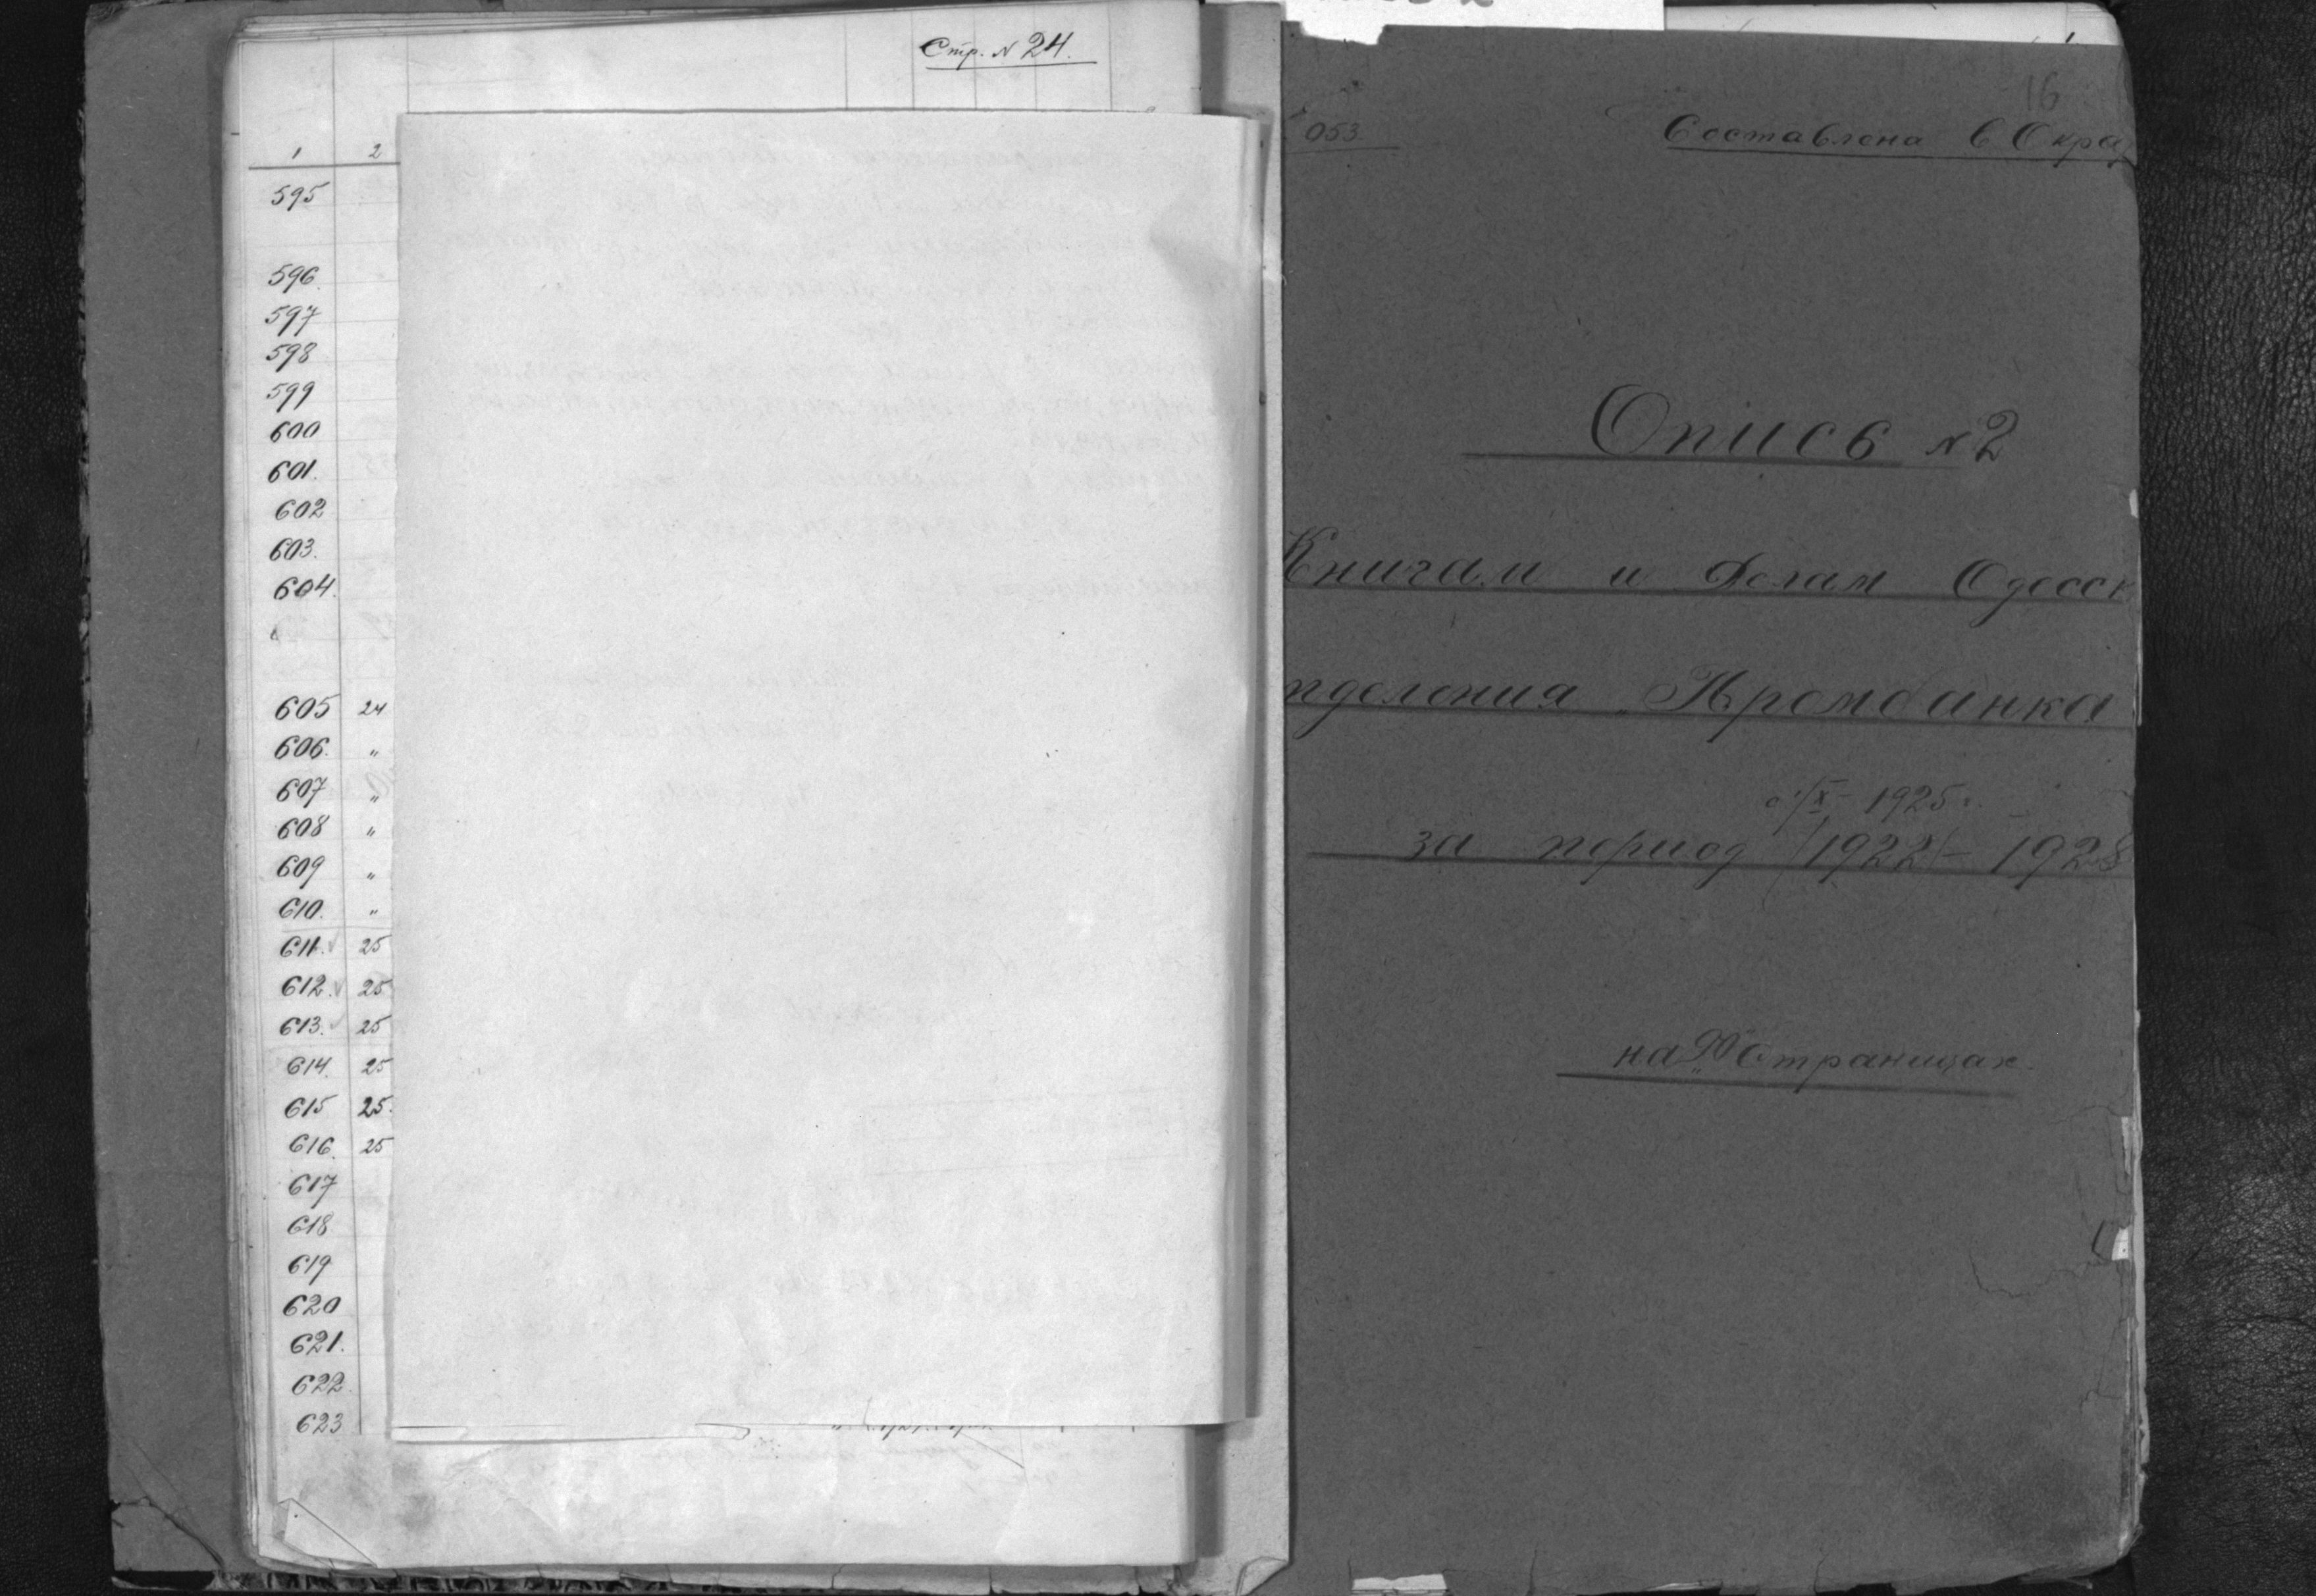 Стр. № 24.
1 2
595
596.
597
598
599
600
601.
602
603.
604.
605 24
606. "
607 "
608 "
609 "
610. "
611. 25
612. 25
613. 25
614. 25
615 25.
616. 25
617
618
619
620
621.
622.
623
16
053. Составлена в Окра
Опись № 2
Книгам и Делам Одесск
тделения Промбанка
1925
за период (1922) – 1928
на 90 страницах.